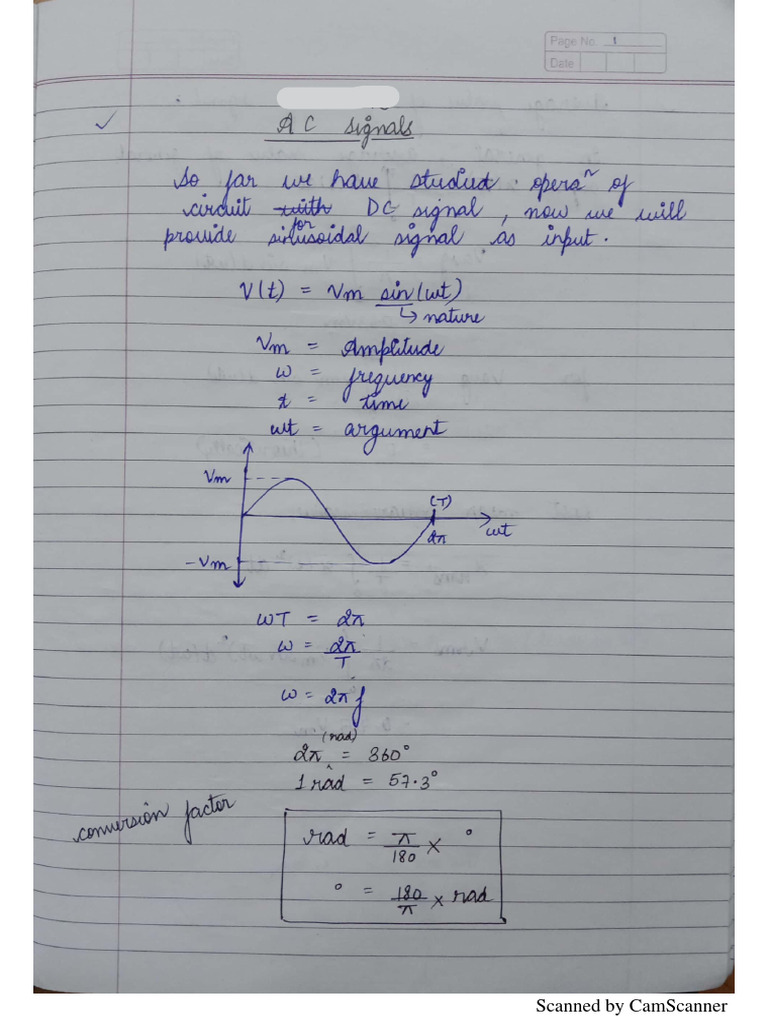 Page No. 1
Date
AC signals
So far we have studied operaⁿ of
circuit with for DC signal, now we will
provide sinusoidal signal as input.
V(t) = Vm sin(ωt)
↳ nature
Vm = Amplitude
ω = frequency
t = time
ωt = argument
Vm
(T)
2π
ωt
-Vm
ωT = 2π
ω = 2π/T
ω = 2πf
2π (rad) = 360°
1 rad = 57.3°
conversion factor
rad = π/180 × °
° = 180/π × rad
Scanned by CamScanner